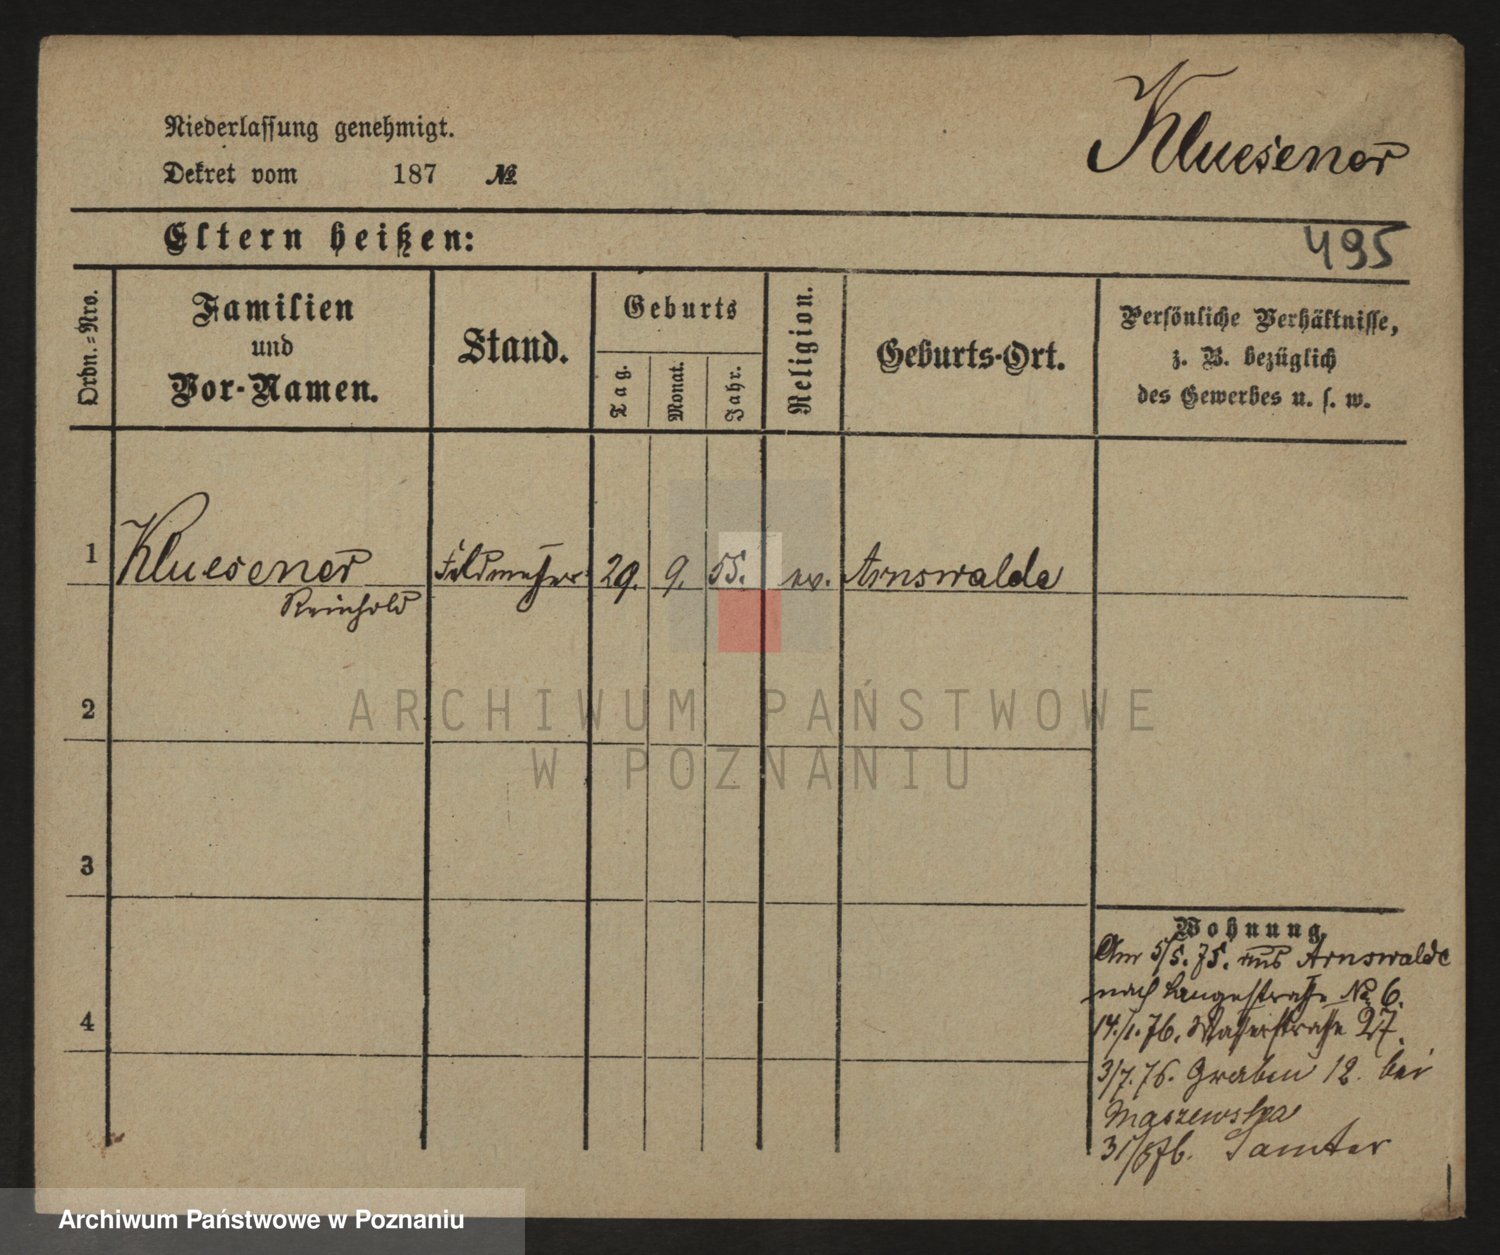 Kluesener
Niederlassung genehmigt.
Dekret vom 187 №
Eltern heißen:
495
Ordn.-Nro.
Familien
und
Vor-Namen.
Stand.
Geburts
Tag.
Monat.
Jahr.
Religion.
Geburts-Ort.
Persönliche Verhältnisse,
z. B. bezüglich
des Gewerbes u. s. w.
1 Kluesener Feldmesser 29. 9. 55. ev. Arnswalde
Reinhold
2
ARCHIWUM PAŃSTWOWE
W POZNANIU
3
4
Wohnung.
Am 5/5. 75. aus Arnswalde
nach Langestrasse № 6.
14./1. 76. Wasserstrasse 27.
3/7. 76. Graben 12. bei
Maszewska
31/8 76. Samter
Archiwum Państwowe w Poznaniu